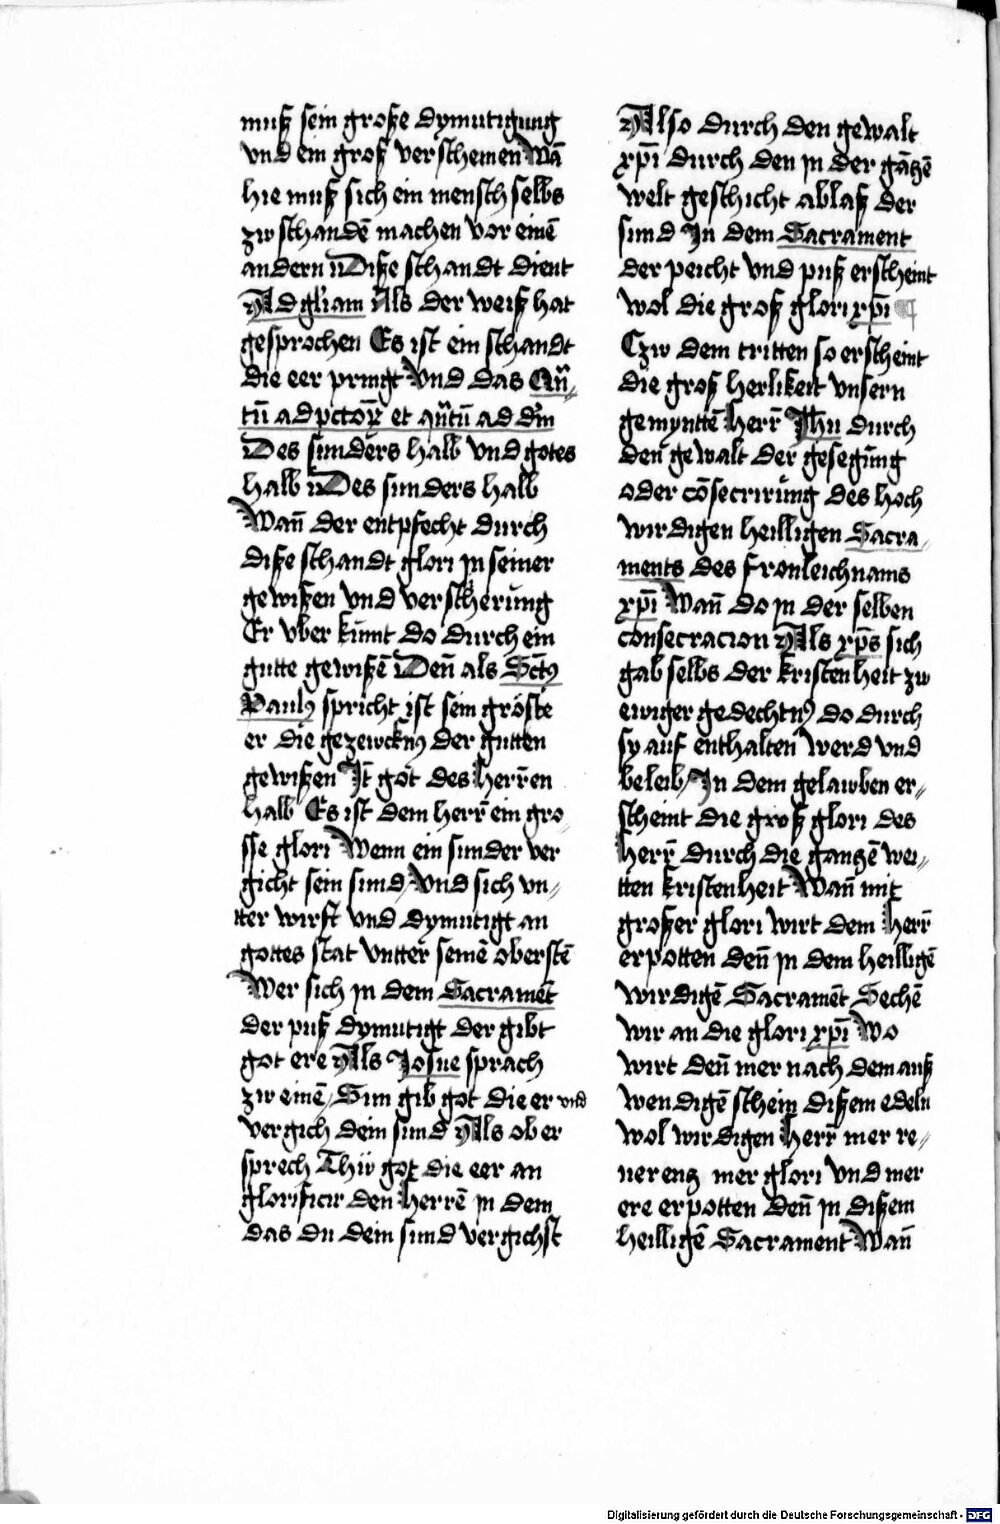 muß sein große dymutigung
vnd ein groß verschemen Wā
hie muß sich ein mensch selbs
zw schandē machen vor einē
andern Diße schandt dient
Ad gl'iam Als der weiß hat
gesprochen Es ist ein schandt
die eer pringt Vnd das
ad et ad
Des sunders halb vnd gotes
halb Des sunders halb
Wañ der entpfecht durch
diße schandt glori jn seiner
gewißen vnd verscherūng
Er vber kumt do durch ein
gutte gewißē Deñ als Sctꝰ
Paulꝰ spricht ist sein gröste
er die gezewcknꝰ der gutten
gewißen Jt got des herren
halb Es ist dem herr̄ ein gro⸗
sse glori Wenn ein sunder ver
gicht sein sund / Vnd sich vn⸗
tter wirft vnd dymutigt an
gottes stat vntter seinē oberstē
Wer sich jn dem Sacramēt
der puß dymutigt der gibt
got ere Als Josue sprach
zw einē / Sun gib got die er vnd
vergich dein sund Als ob er
sprech Thw got die eer an
glorificir den herrē jn dem
das du dein sund vergichst
Also durch den gewalt
xp̄i durch den jn der gāczē
welt geschicht ablaß der
sund Jn dem Sacrament
der peicht vnd puß erscheint
wol die groß glori xp̄i
Czw dem tritten so erscheint
die groß herlikeit vnsern
gemynttē herr̄ Jhu durch
den gewalt der gesegūng
oder cōsecrirūng des hoch
wirdigen heilligen Sacra⸗
ments des fronleichnams
xp̄i Wañ do jn der selben
consecracion Als xp̄s sich
gab selbs der kristenheit zw
ewiger gedechtnꝰ do durch
sy auf enthalten werd vnd
beleib / Jn dem gelawben er⸗
scheint die groß glori des
herr̄ durch die ganczē wei⸗
tten kristenheit Wañ mit
großer glori wirt dem herr̄
erpotten deñ jn dem heilligē
wirdigē Sacramēt Sechē
wir an die glori xp̄i Wo
wirt deñ mer nach dem auß
wendigē schein dißem edeln
wol wirdigen herr̄ mer re⸗
uerencz mer glori vnd mer
ere erpotten deñ jn dißem
heilligē Sacrament Wañ
Digitalisierung gefördert durch die Deutsche Forschungsgemeinschaft - DFG